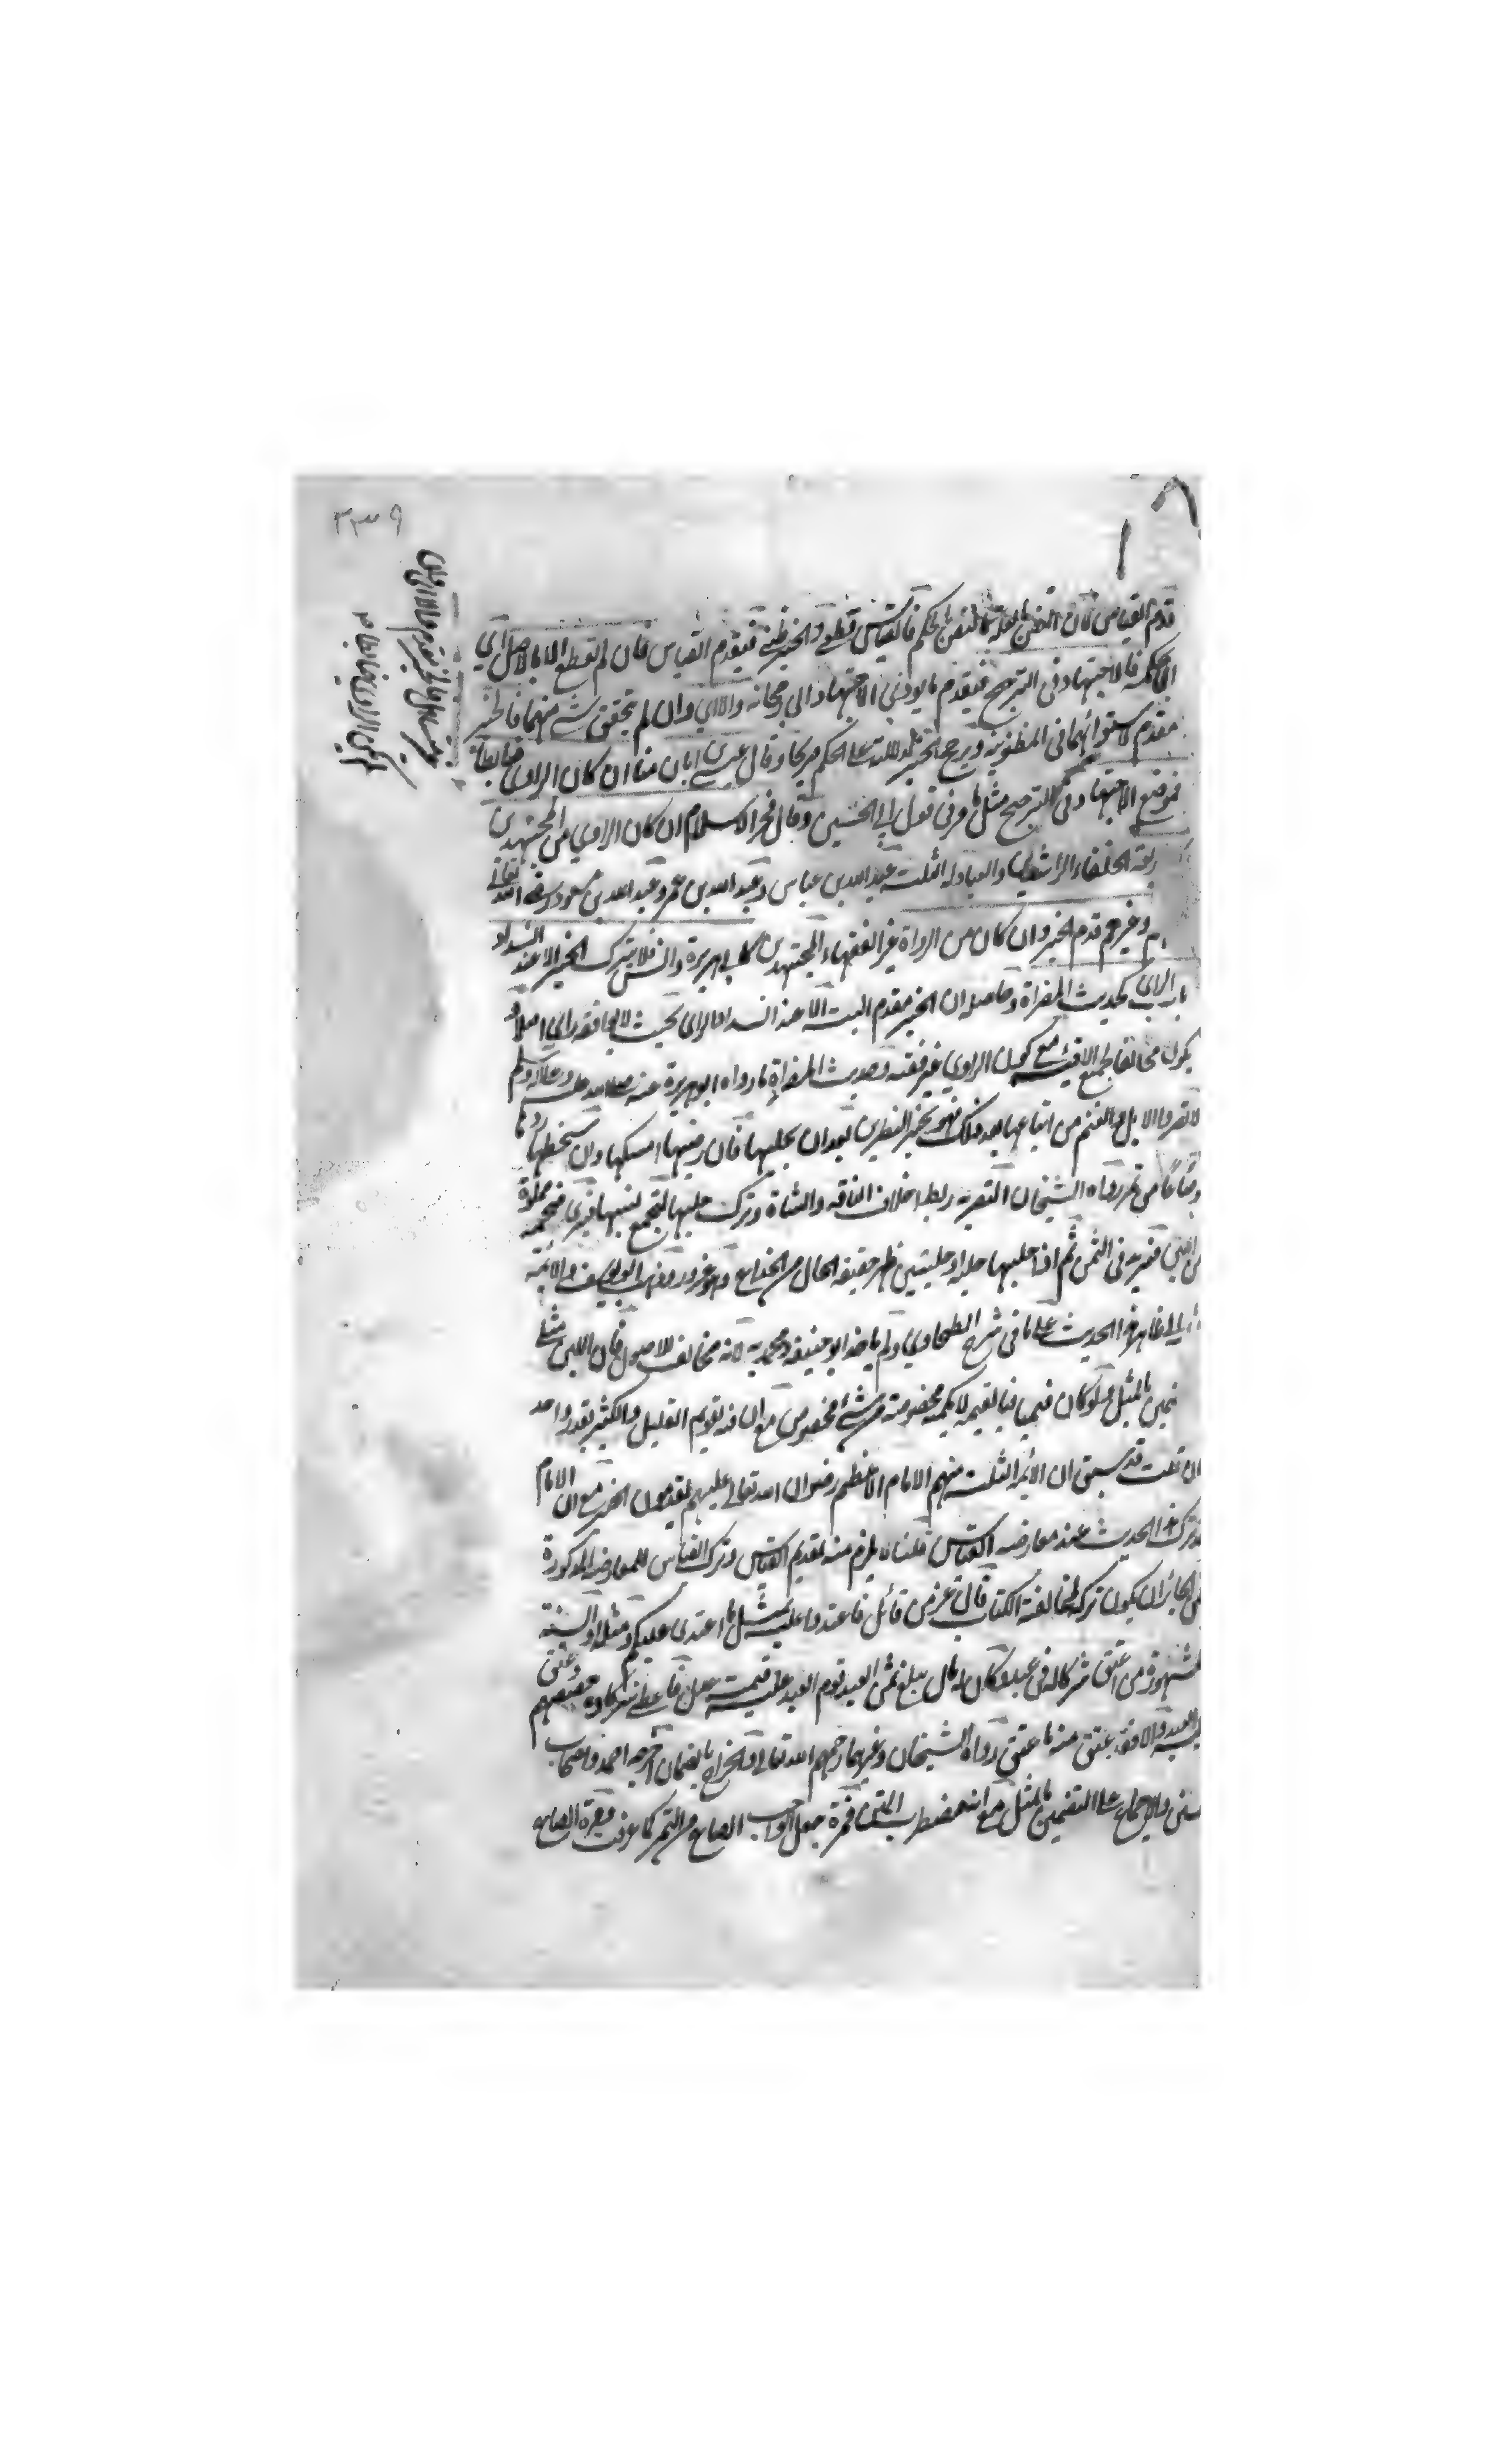 ٣٣٩
قدم القياس فان القطع بالعلة كالنص الحكم فالقياس قطعي والخبر ظني فيقدم القياس فان لم يقطع الا بالاصل اي
الحكم فالاجتهاد في الترجيح فيقدم ما يودي الاجتهاد الى رجحانه والا اي وان لم يتحقق شئ منهما فالخبر
مقدم لاستوائهما في المظنونية ويرجح الخبر لدلالته على الحكم صريحا وقال عيسى ابن ابان منا ان كان الراوي ضابطا
فموضع الاجتهاد في الترجيح مثل ما مر في قول ابي الحسين وقال فخر الاسلام ان كان الراوي من المجتهدين
الخلفاء الراشدين والعبادلة الثلث عبد الله بن عباس وعبد الله بن عمر وعبد الله بن مسعود رضي الله تعالى
وغيرهم قدم الخبر وان كان من الرواة غير الفقهاء المجتهدين كابي هريرة وانس فلا يترك الخبر الا عند انسداد
باب الراي كحديث المصراة وحاصله ان الخبر مقدم البتة الا عند انسداد الراي بحيث لا يوافقه راي اصلا
يكون مخالفا لجميع الاقيسة مع كون الراوي غير فقيه وحديث المصراة ما رواه ابو هريرة عنه صلى الله عليه وعلى آله وسلم
لا تصروا الابل والغنم من ابتاعها بعد ذلك فهو بخير النظرين بعد ان يحلبها فان رضيها امسكها وان سخطها ردها
وصاعا من تمر رواه الشيخان التصرية ربط اخلاف الناقة والشاة وترك حلبها ليجتمع لبنها فيرى ضخمة مملوة
من اللبن فيزيد في الثمن ثم اذا حلبها حلبة او حلبتين ظهر حقيقة الحال من الخداع وهو غرور وذهب ابو يوسف والائمة
الى ظاهر هذا الحديث على ما في شرح الطحاوي ولم ياخذ ابو حنيفة ومحمد به لانه مخالف للاصول فان اللبن مثلي
بالمثل ولو كان قيميا فبالقيمة لا بكمية مخصوصة من شئ مخصوص مع ان فيه تقويم القليل والكثير بقدر واحد
ان قلت قد سبق ان الائمة الثلث منهم الامام الاعظم رضوان الله تعالى عليهم يقدمون الخبر مع ان الامام
ترك هذا الحديث عند معارضة القياس قلنا ما يلزم منه تقديم القياس وترك القياس للمعارضة المذكورة
الجائز ان يكون تركه لمخالفة الكتاب قال عز من قائل فاعتدوا عليه بمثل ما اعتدى عليكم ومثله السنة
المشهورة من اعتق شركا له في عبد وكان له مال يبلغ ثمن العبد قوم العبد عليه قيمة عدل فاعطى شركاءه حصصهم وعتق
عليه العبد والا فقد عتق منه ما عتق رواه الشيخان وغيرهما رحمهم الله تعالى والخراج بالضمان اخرجه احمد واصحاب
السنن والاجماع على التضمين بالمثل مع انه مضطرب المتن فمرة جعل الواجب الصاع من التمر كما عرفت ومرة الصاع